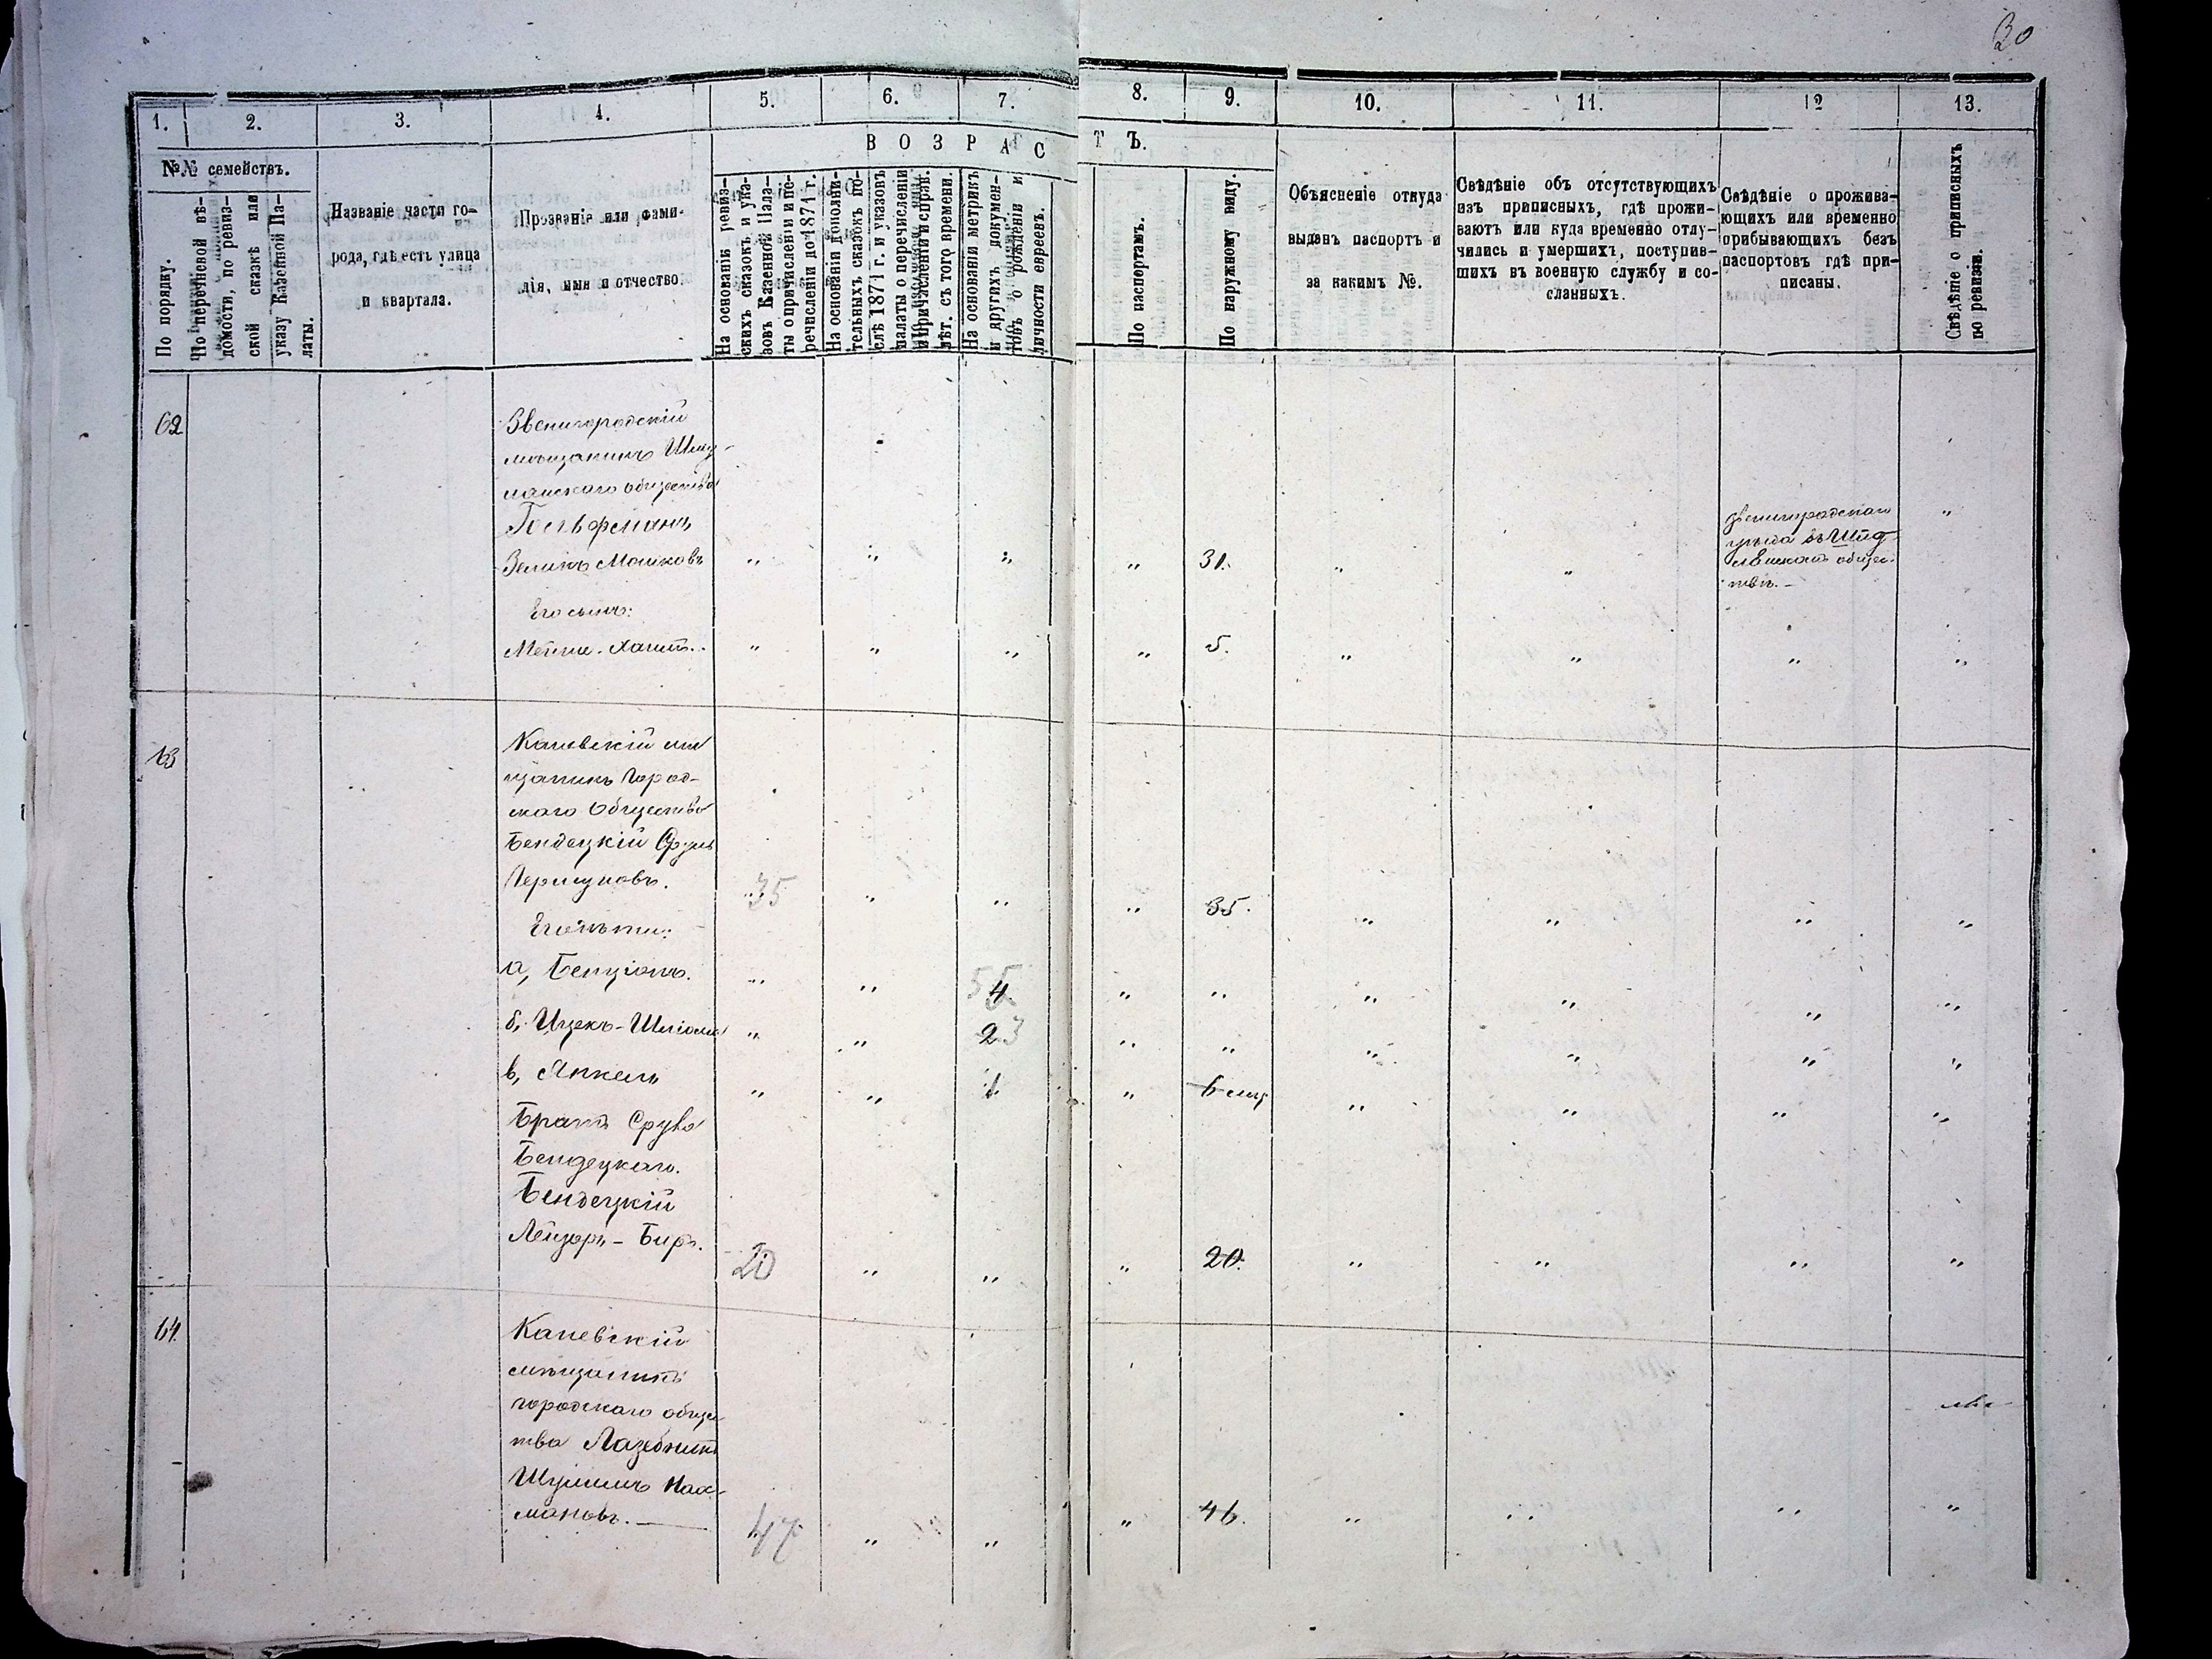 30
1. 2. 3. 4. 5. 6. 7. 8. 9. 10. 11. 12 13.
В О З Р А С Т Ъ.
№№ семействъ.
По порядку.
По перечневой вѣ-
домости, по ревиз-
ской сказкѣ или
указу Казенной Па-
латы.
Названіе части го-
рода, гдѣ есть улица
и квартала.
Прозваніе или фами-
лія, имя и отчество.
На основаніи ревиз-
скихъ сказокъ и ука-
зовъ Казенной Пала-
ты о причисленіи и пе-
речисленіи до 1871 г.
На основаніи дополни-
тельныхъ сказокъ по-
слѣ 1871 г. и указовъ
палаты о перечисленіи
и причисленіи и справ.
лѣт. съ того времени.
На основаніи метрикъ
и другихъ докумен-
товъ о рожденіи и
личности евреевъ.
По паспортамъ.
По наружному виду.
Объясненіе откуда
выданъ паспортъ и
за какимъ №.
Свѣдѣніе объ отсутствующихъ
изъ приписныхъ, гдѣ прожи-
ваютъ или куда временно отлу-
чились и умершихъ, поступив-
шихъ въ военную службу и со-
сланныхъ.
Свѣдѣніе о прожива-
ющихъ или временно
прибывающихъ безъ
паспортовъ гдѣ при-
писаны.
Свѣдѣніе о приписныхъ
по ревизіи.
62
Звенигородскій
мѣщанинъ
общества
Зеликъ Мошковъ „ „ „ „ 31. „ „ „
Звенигородскаго
уѣзда въ
общес-
твѣ.-
Его сынъ:
„ „ „ „ 5. „ „ „ „
63
Каневскій мѣ
щанинъ Город-
скаго Общества
Бендецкій Сруль
Гершуновъ. 35 „ „ „ 35. „ „ „ „
Его дѣти:
а, Бенціонъ. „ „ 5 4. „ „ „ „ „ „
б, Ицекъ-Шліома „ „ 2 3 „ „ „ „ „ „
в, Янкель „ „ 1 „ 6 мц „ „ „ „
Братъ Сруля
Бендецкаго.
Бендецкій
Лейзоръ-Беръ. 20 „ „ „ 20. „ „ „ „
64.
Каневскій
мѣщанинъ
городскаго общес
тва Лазебникъ
Шулимъ Нах-
мановъ. 47 „ „ „ 46. „ „ „ „